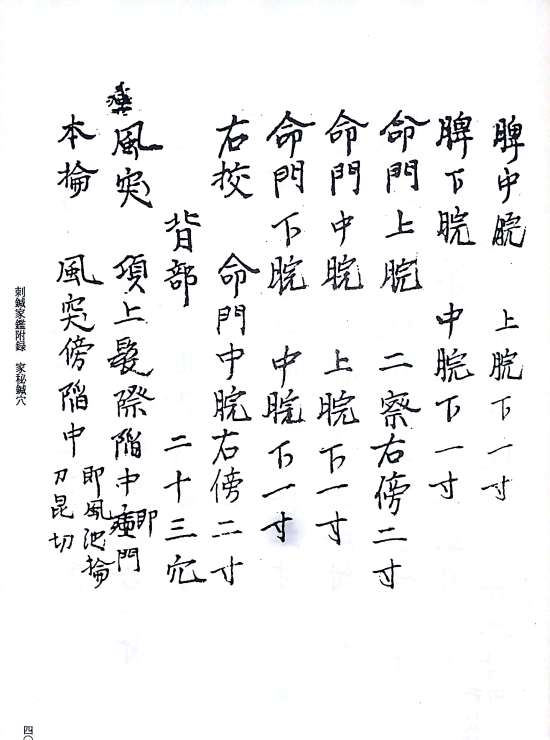 脾中脘 上脘下一寸
脾下脘 中脘下一寸
命門上脘 二察右傍二寸
命門中脘 上脘下一寸
命門下脘 中脘下一寸
右挍 命門中脘右傍二寸
背部 二十三穴
風突 項上髮際陷中 即瘂門
本掄 風突傍陷中 即風池掄 刀昆切
刺鍼家鑑附録 家秘鍼穴
四〇